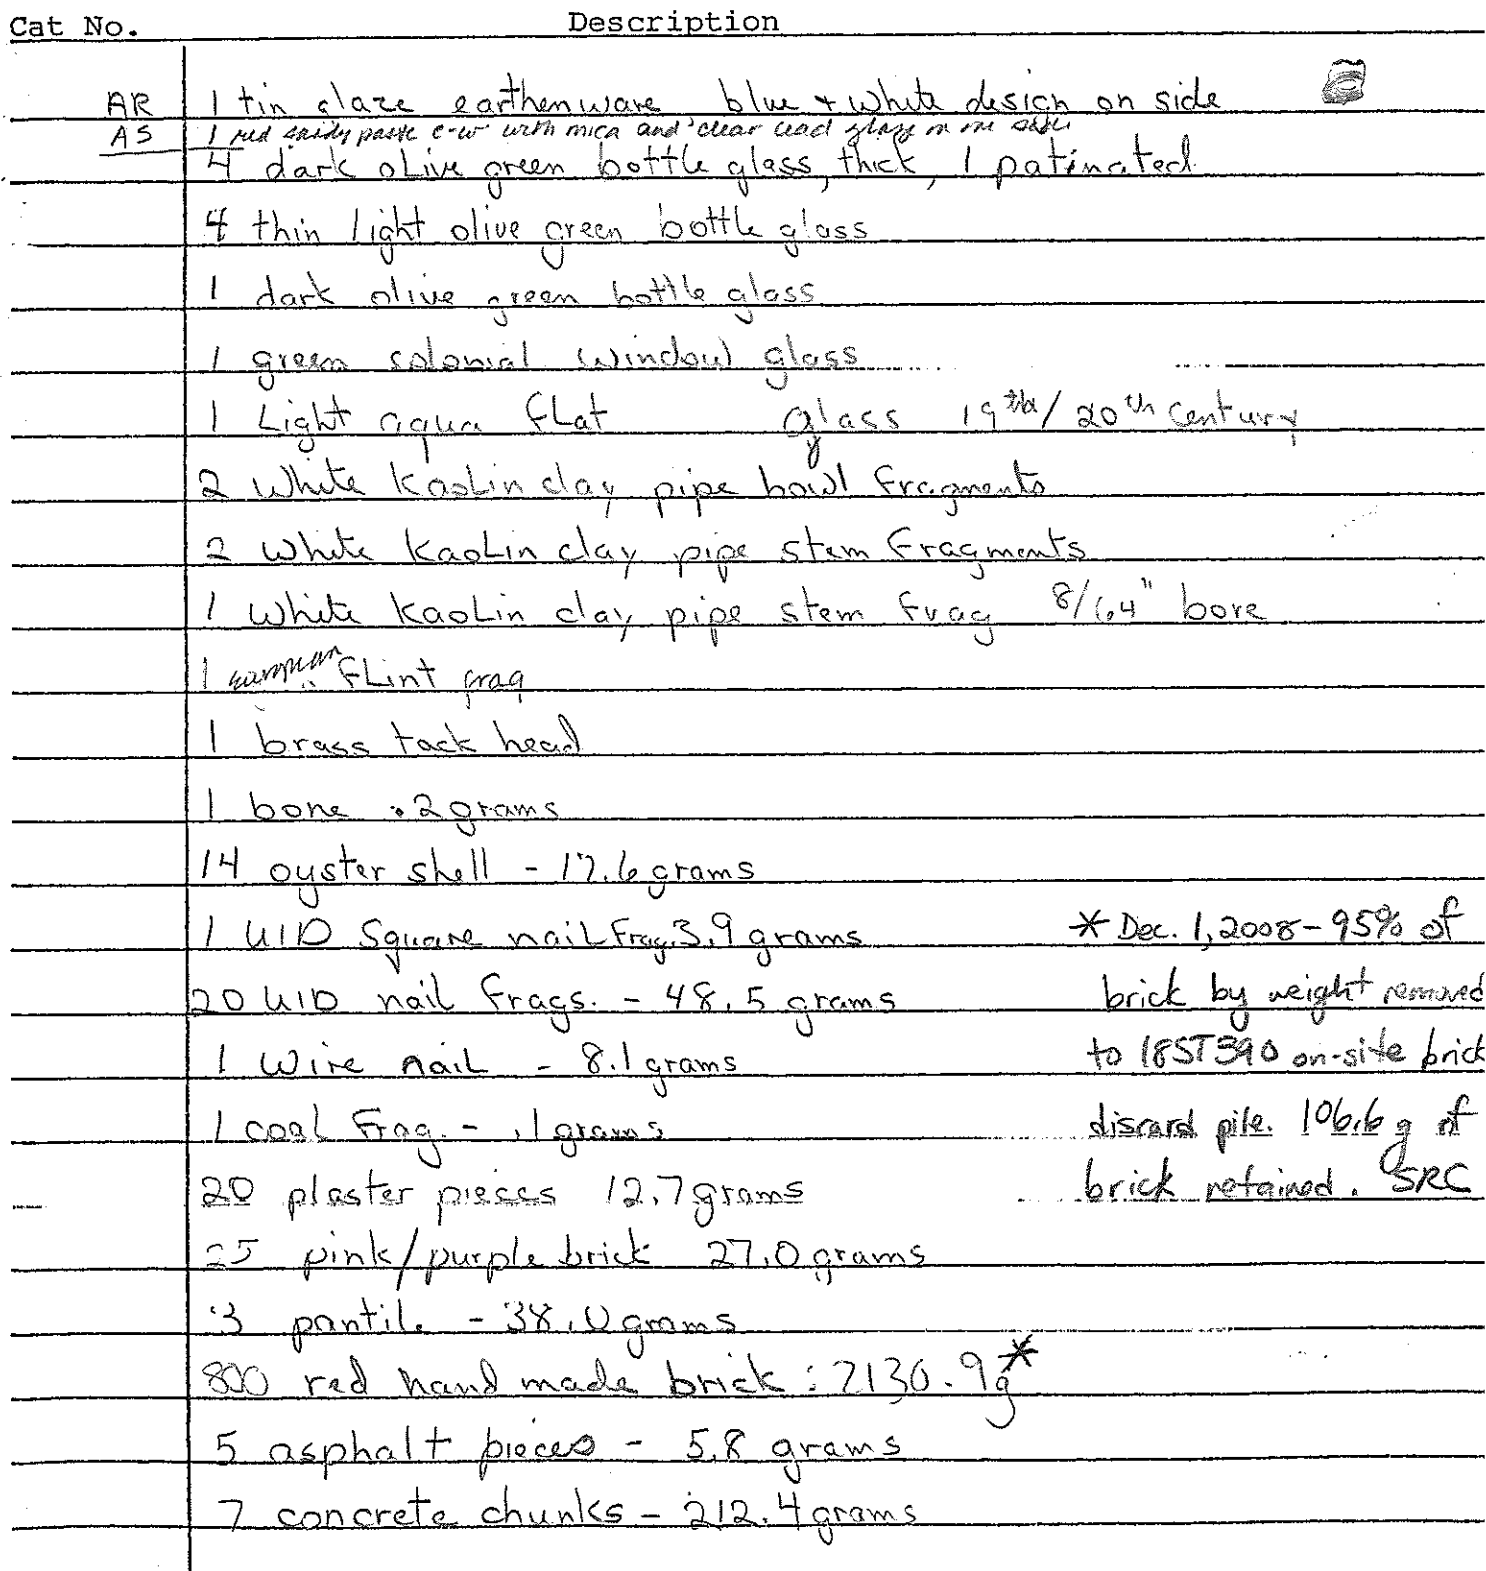 Cat No. Description
AR 1 tin glaze earthenware blue + white design on side
AS 1 red sandy paste e-w with mica and clear lead glaze on one side
4 dark olive green bottle glass, thick, 1 patinated
4 thin light olive green bottle glass
1 dark olive green bottle glass
1 green colonial window glass
1 Light aqua flat glass 19th/20th century
2 White Kaolin clay pipe bowl fragments
2 White Kaolin clay pipe stem fragments
1 White Kaolin clay pipe stem frag 8/64" bore
1 european flint frag
1 brass tack head
1 bone .2 grams
14 oyster shell - 17.6 grams
1 UID Square nail frag. 3.9 grams
20 UID nail frags. - 48.5 grams
1 Wire nail - 8.1 grams
1 coal frag. - .1 grams
20 plaster pieces 12.7 grams
25 pink/purple brick 27.0 grams
3 pantile - 38.0 grams
800 red hand made brick : 2130.9g*
5 asphalt pieces - 5.8 grams
7 concrete chunks - 212.4 grams
* Dec. 1, 2008 - 95% of
brick by weight removed
to 18ST390 on-site brick
discard pile. 106.6 g of
brick retained. SRC